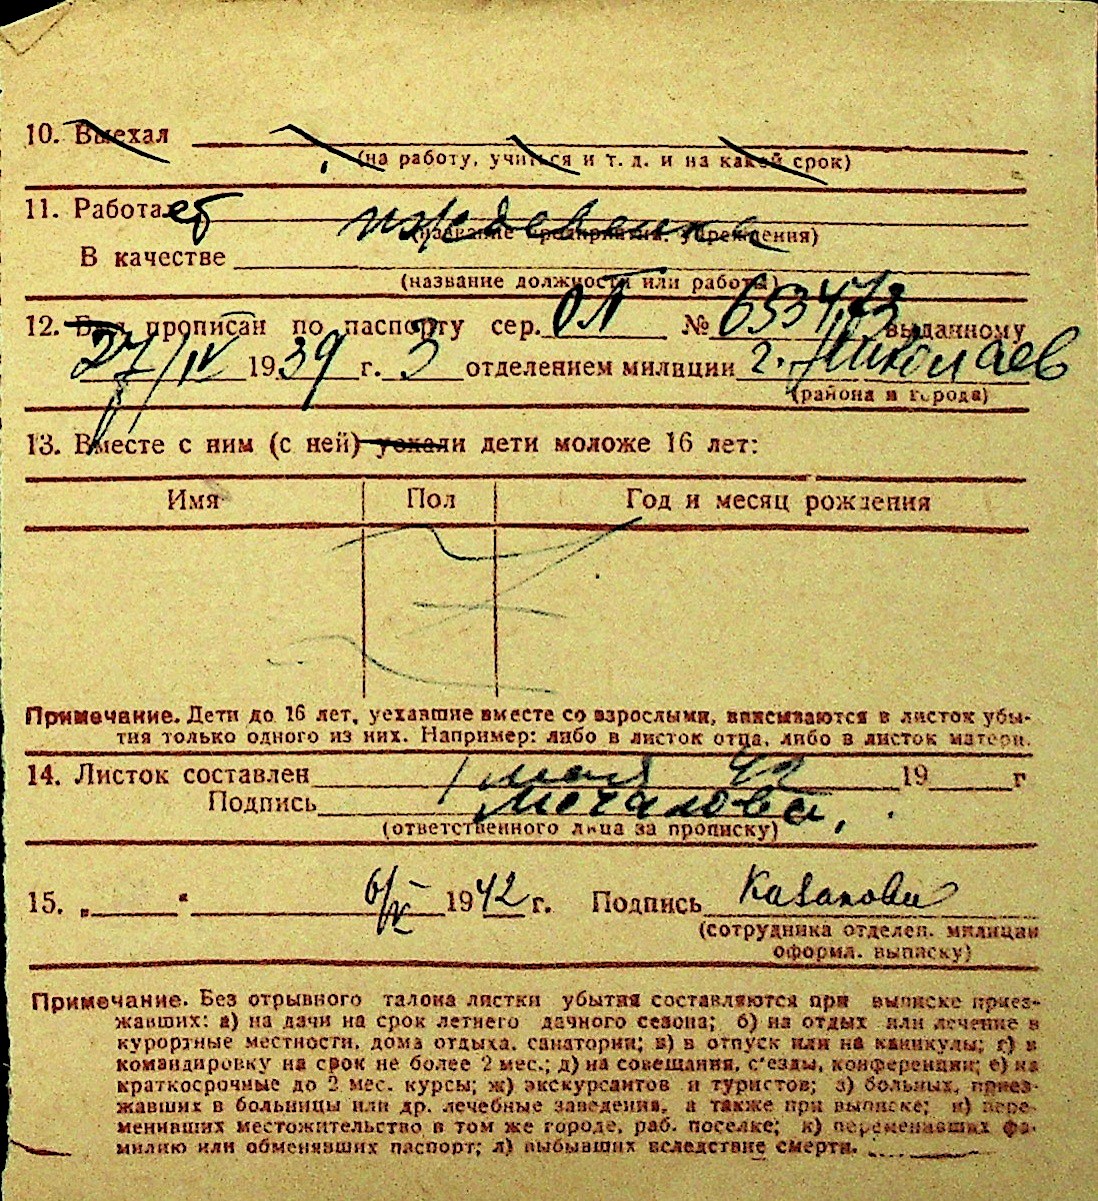 10. Выехал
(на работу, учиться и т. д. и на какой срок)
11. Работает иждевенка
(название предприятия, учреждения)
В качестве
(название должности или работы)
12. Был прописан по паспорту сер. ОЛ № 653473 выданному
27/IV 1939 г. 3 отделением милиции г. Николаев
(района и города)
13. Вместе с ним (с ней) уехали дети моложе 16 лет:
Имя Пол Год и месяц рождения
Примечание. Дети до 16 лет, уехавшие вместе со взрослыми, вписываются в листок убы-
тия только одного из них. Например: либо в листок отца, либо в листок матери.
14. Листок составлен 1 мая 42 19 г
Подпись Мочалова,
(ответственного лица за прописку)
15. „ “ 6/V 1942 г. Подпись
(сотрудника отделен. милиции
оформл. выписку)
Примечание. Без отрывного талона листки убытия составляются при выписке приез-
жавших: а) на дачи на срок летнего дачного сезона; б) на отдых или лечение в
курортные местности, дома отдыха, санатории; в) в отпуск или на каникулы; г) в
командировку на срок не более 2 мес.; д) на совещания, с'езды, конференции; е) на
краткосрочные до 2 мес. курсы; ж) экскурсантов и туристов; з) больных, приез-
жавших в больницы или др. лечебные заведения, а также при выписке; и) пере-
менивших местожительство в том же городе, раб. поселке; к) переменивших фа-
милию или обменявших паспорт; л) выбывших вследствие смерти.